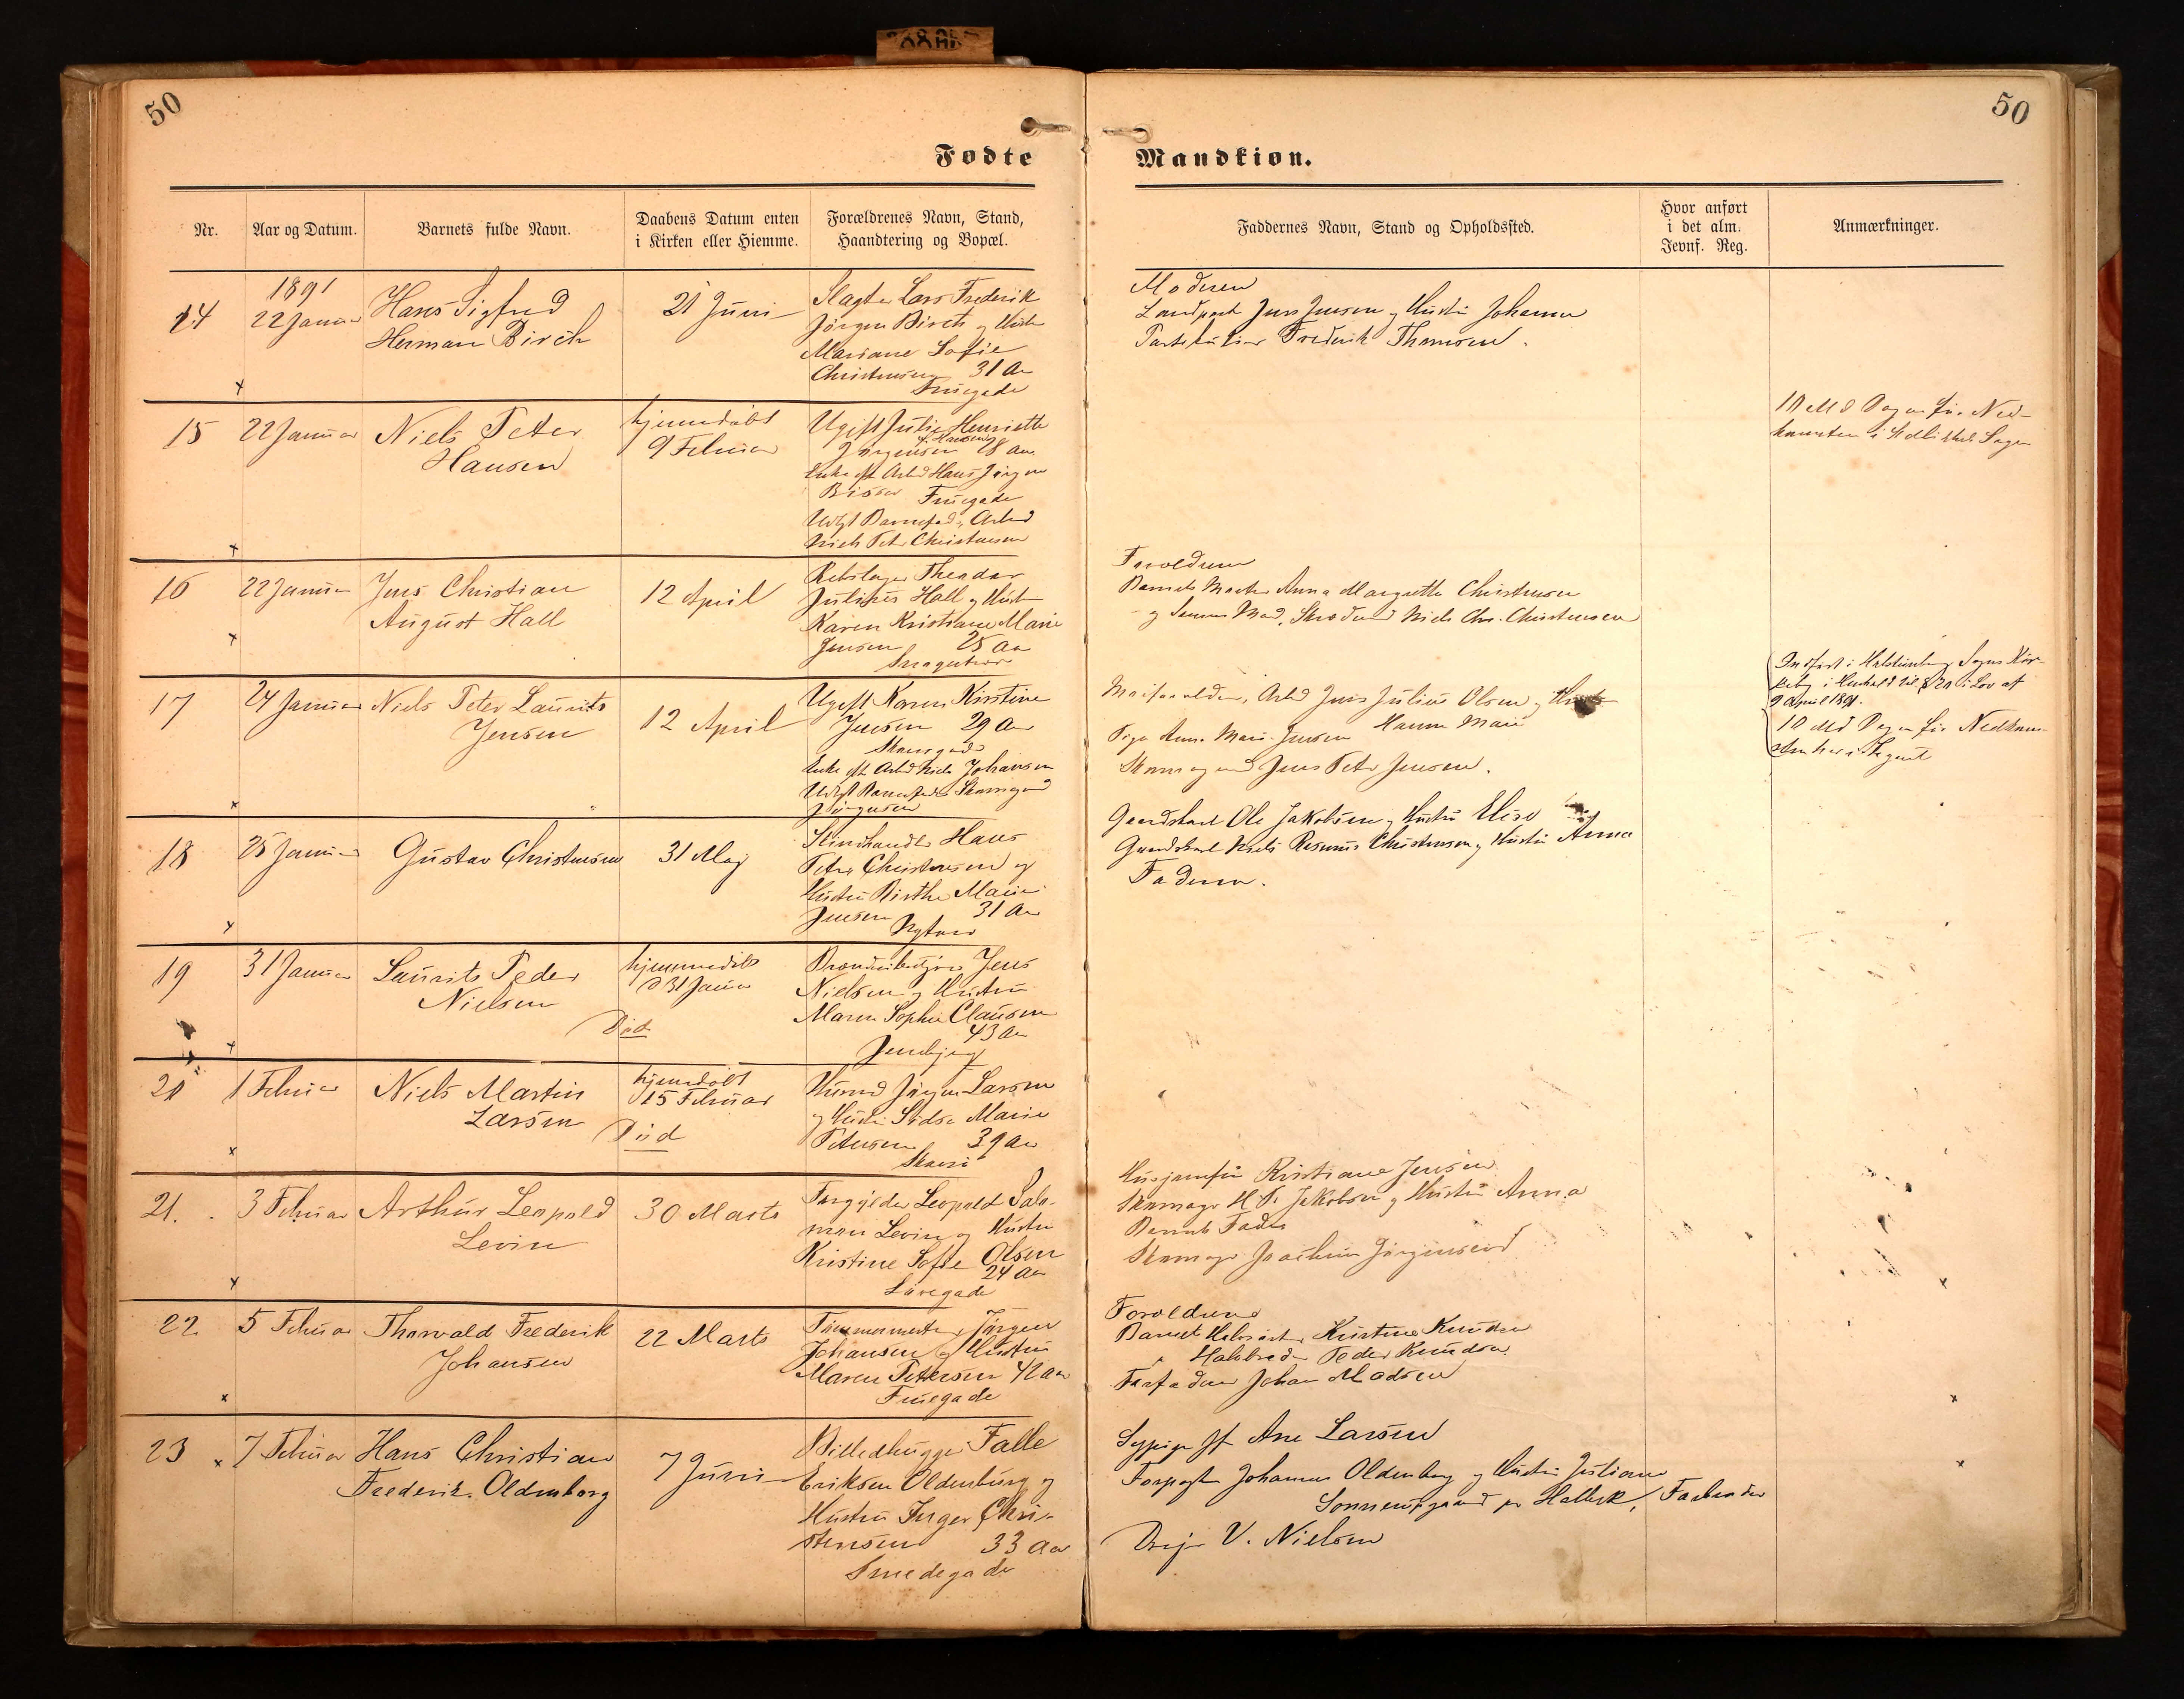 50
50
Fødte
Mandkiøn.
Nr.
Aar og Datum.
Barnets fulde Navn.
Daabens Datum enten
i Kirken eller Hiemme.
Forældrenes Navn, Stand,
Haandtering og Bopæl.
Faddernes Navn, Stand og Opholdssted.
Hvor anført
i det alm.
Jevnf. Reg.
Anmærkninger.
1891
14
22 Januar
Hans Sigfred
Herman Birch
21 Juni
Slagter Lars Frederik
Jörgen Birch og Hustru
Mariane Sofie
Christensen 31 Aar
Fruegade
Moderen
Jens Jensen og Hustru Johanne
Partikulier Frederik Thomsen.
15
22 Januar
Niels Peter
Hansen
hjemmedøbt
9 Februar
Ugift Julie Henriette
f. Hansen
Jörgensen 28 Aar
Enke eft Arbd Hans Jörgen
Fruegade
Udlgt Barnefader Arbmd
Niels Peter Christensen
10 Md Dagen før Ned-
komsten i Sogn
16
22 Januar
Jens Christian
August Hall
12 April
Rebslager Theodor
Julius Hall og Hustru
Karen Kristiane Marie
Jensen 25 Aar
Foroldrene
Barnets Moster Anna Margrethe Christensen
og Mand, Niels Chr. Christensen
17
24 Januar
Niels Peter Laurits
Jensen
12 April
Ugift Karen Kirstine
Jensen 29 Aar
Enke eft Arbd Niels Johansen
Udlgt Barnefader
Jörgensen
Arbd Jens Julius Olsen og Hustru
Hanne Marie
Pige Anne Marie Jensen
Jens Peter Jensen.
Indført i Sogns Kir-
kebog i Henhold til § 20 i Lov af
9 April 1891.
10 Md Dagen før Nedkom-
sten her i Sognet
18
25 Januar
Gustav Christensen
31 Maj
Hans
Peter Christensen og
Hustru Birthe Marie
Jensen 31 Aar
Nytorv
Gaardskarl Ole Jakobsen og Hustru Elise
Gaardskarl Niels Rasmus Christensen og Hustru Anna
Faderen.
19
31 Januar
Laurits Peder
Nielsen
hjemmedöbt
d 31 Januar
Död
Jens
Nielsen og Hustru
Maren Sophie Clausen
43 Aar
20
1 Februar
Niels Martin
Larsen
hjemmedöbt
15 Februar
Död
Jörgen Larsen
og Hustru Sidse Marie
Petersen 39 Aar
21.
3 Februar
Arthur Leopold
Levin
30 Marts
Forgylder Leopold Salo-
mon Levin og Hustru
Kristine Sofie Olsen
24 Aar
Lövegade
Husjomfru Kristiane Jensen
Skomager H. P. Jakobsen og Hustru Anna
Barnets Fader
Skomager Joachim Jörgensen
22
5 Februar
Thorvald Frederik
Johansen
22 Marts
Tømmermester Jörgen
Johansen og Hustru
Maren Pettersen 42 Aar
Fruegade
Foroldrene
Barnets Halvsøster Kirstine Knudsen
" Halvbroder Peder Knudsen
Farfaderen Johan Madsen
23
7 Februar
Hans Christian
Frederik Oldenborg
7 Juni
Billedhugger Falle
Eriksen Oldenburg og
Hustru Inger Chri-
stensen 33 Aar
Smedegade
Sypige Jfr Ane Larsen
Forpagter Johannes Oldenborg og Hustru Juliane
Sonnerupgaard pr Hvalsø, Farbroder
Drejer V. Nielsen